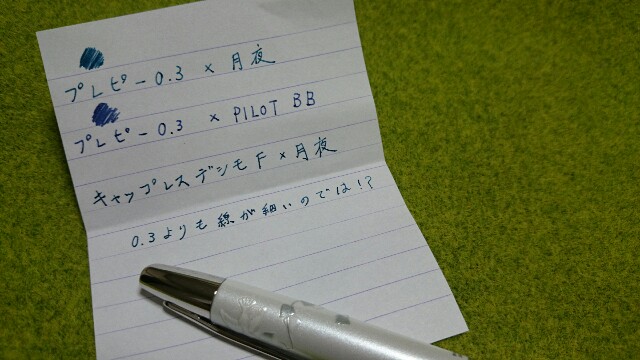 プレピー 0.3 × 月夜
プレピー 0.3 × PILOT BB
キャップレスデシモ F × 月夜
0.3よりも線が細いのでは!?